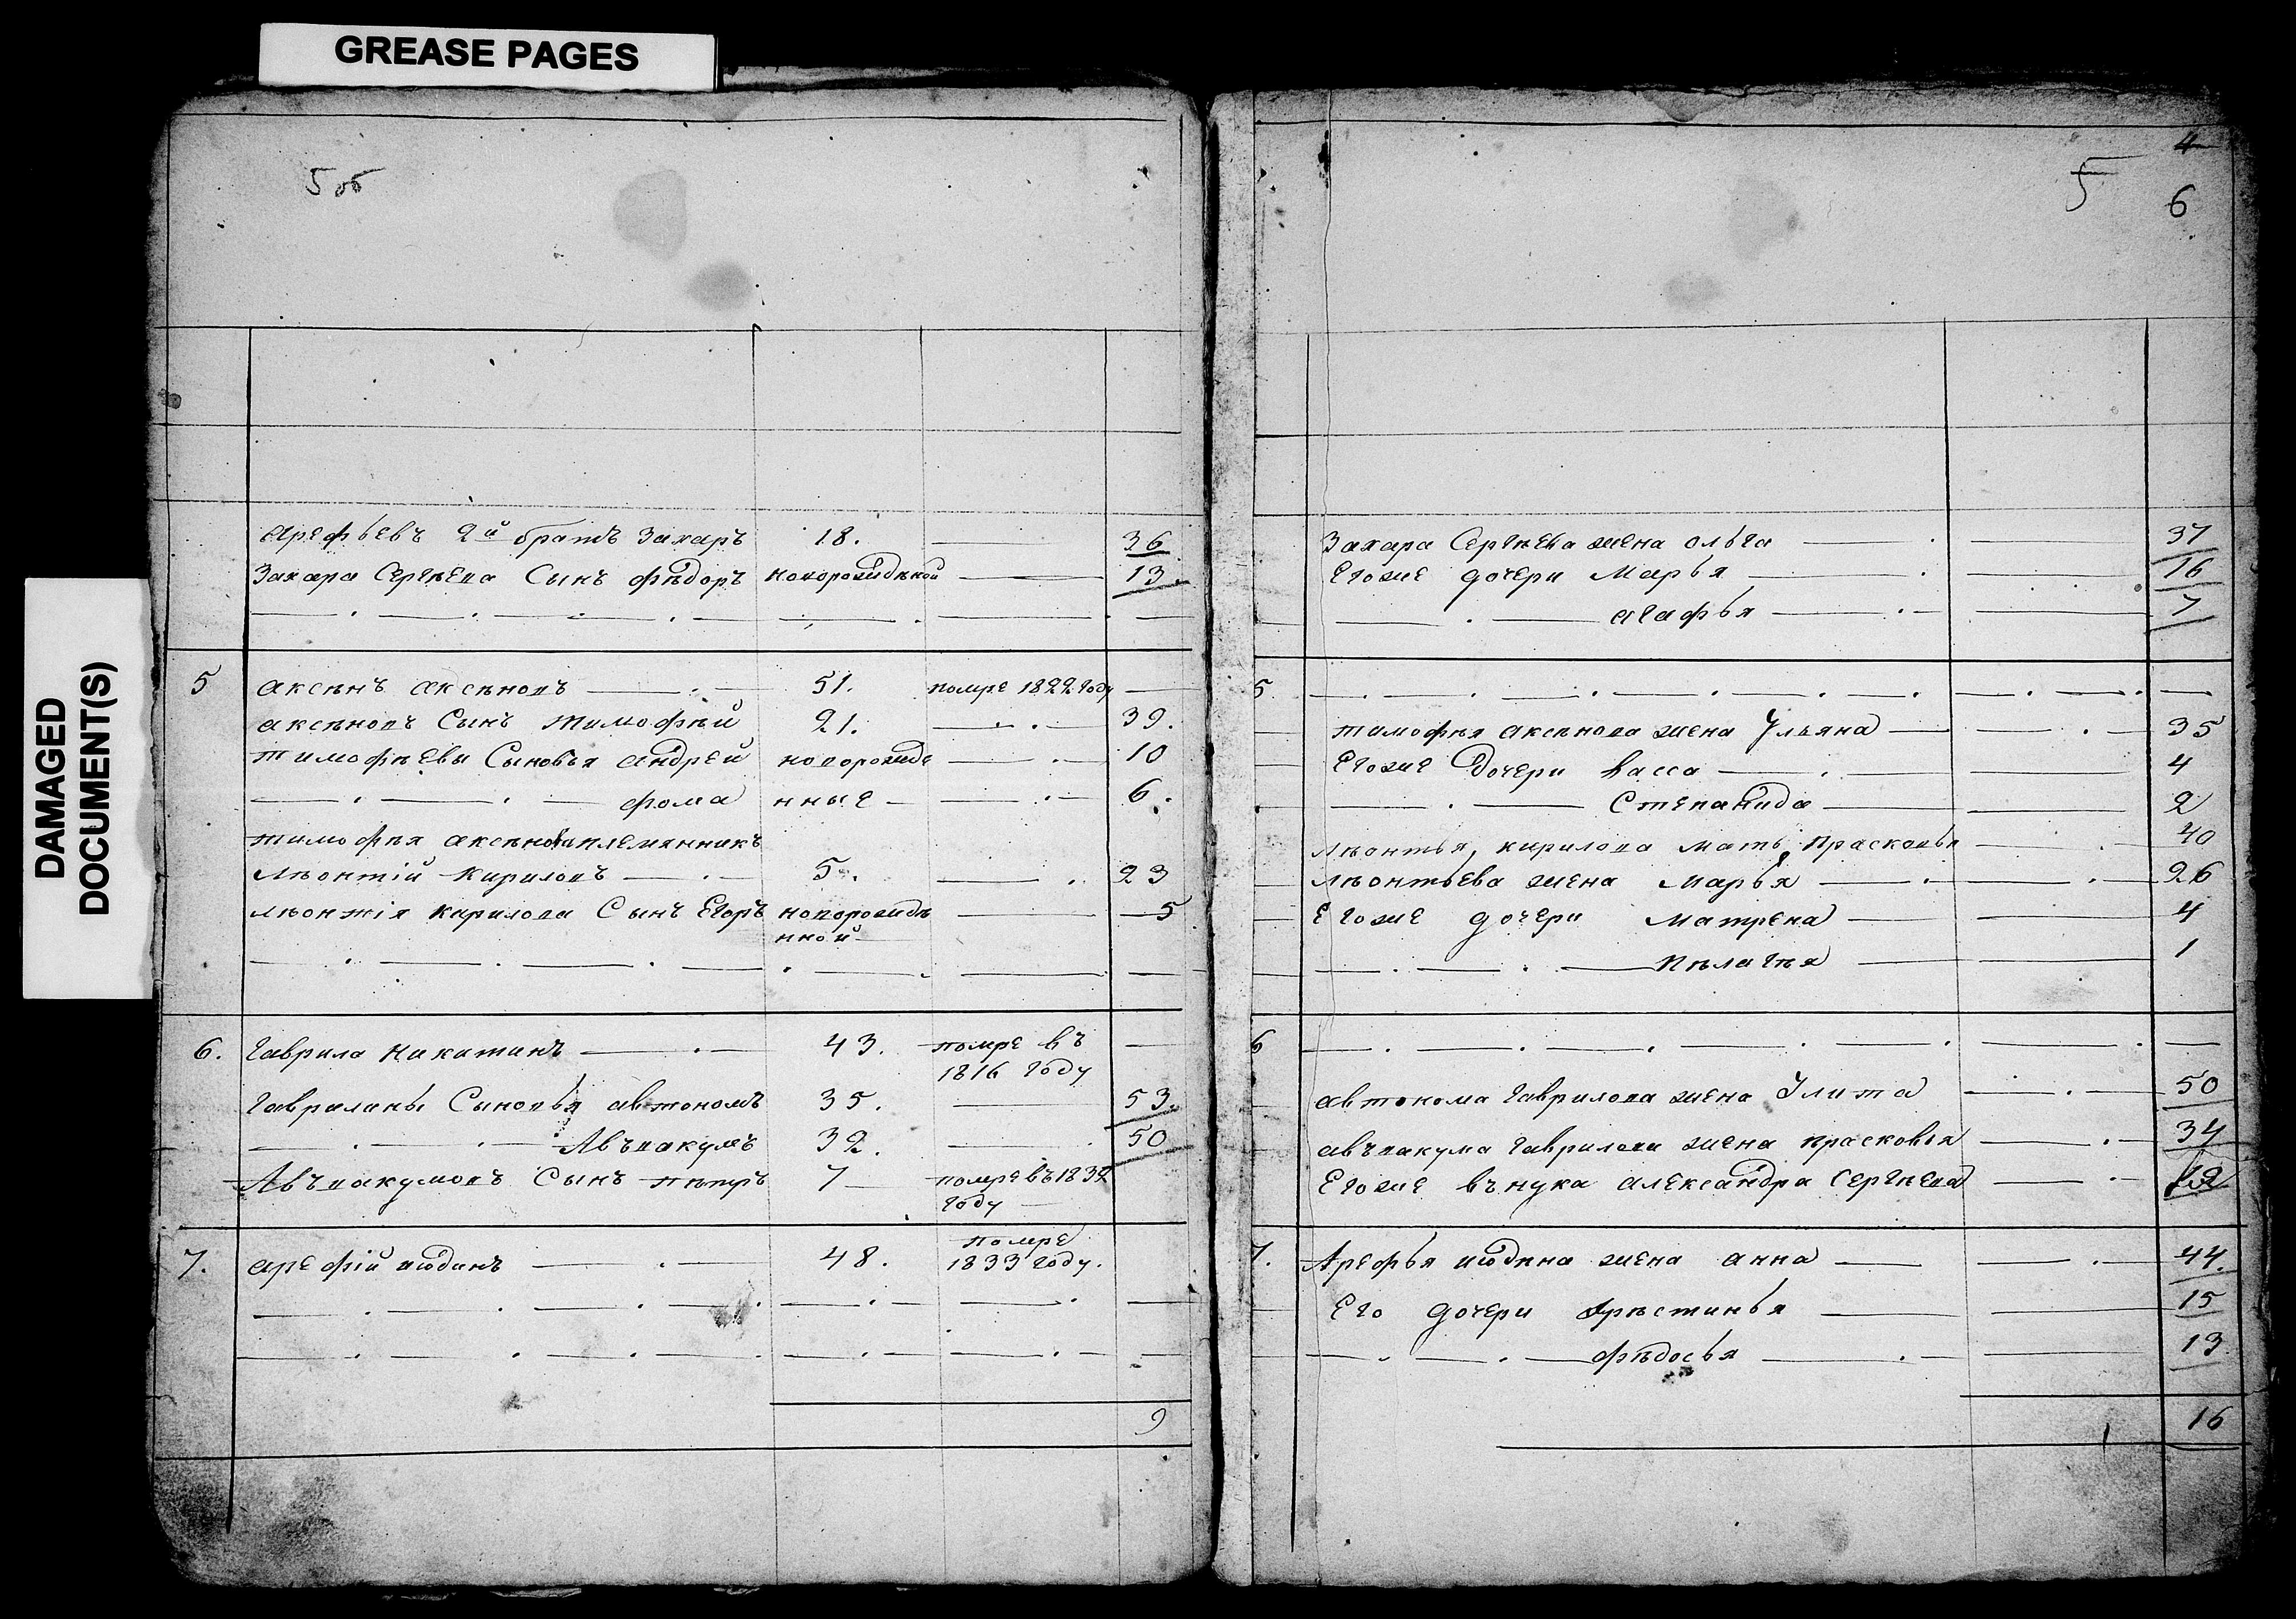 GREASE PAGES
DAMAGED
DOCUMENT(S)
5 об
арефьевъ 2й братъ Захаръ 18. 36
Захара Сергѣева Сынъ фѣдоръ новорождѣной 13
5 аксѣнъ аксѣновъ 51. помре 1822 году
аксѣновъ Сынъ тимофѣй 21. 39.
тимофѣевы Сыновья андрей новорожде 10
фома нные 6.
тимофѣя аксѣнова племянникъ
Лѣонтій кириловъ 5. 23
лѣонтія кирилова Сынъ Егоръ новорождѣ 5
нной
6. гаврила никитинъ 43. помре въ
1816 году
гавриловы Сыновья автономъ 35. 53.
Авъвакумъ 32. 50
Авъвакумовъ Сынъ пѣтръ 7 помре въ 1832
году
7. арефій июдинъ 48. помре
1833 году.
9
4
5 6
Захара Сергѣева жена ольга 37
Егоже дочери Марья 16
агафья 7
5
тимофѣя аксѣнова жена Ульяна 35
Егоже дочери васса 4
Степанида 2
лѣонтья кирилова мать Прасковья 40
лѣонтьева жена марья 26
Егоже дочери матрена 4
пѣлагѣя 1
6
автонома гаврилова жена Улита 50
авъвакума гаврилова жена прасковья 34
Егоже внука александра Сергѣева 12
7. Арефья июдина жена анна 44.
Его дочери хрѣстинья 15
фѣдосья 13
16